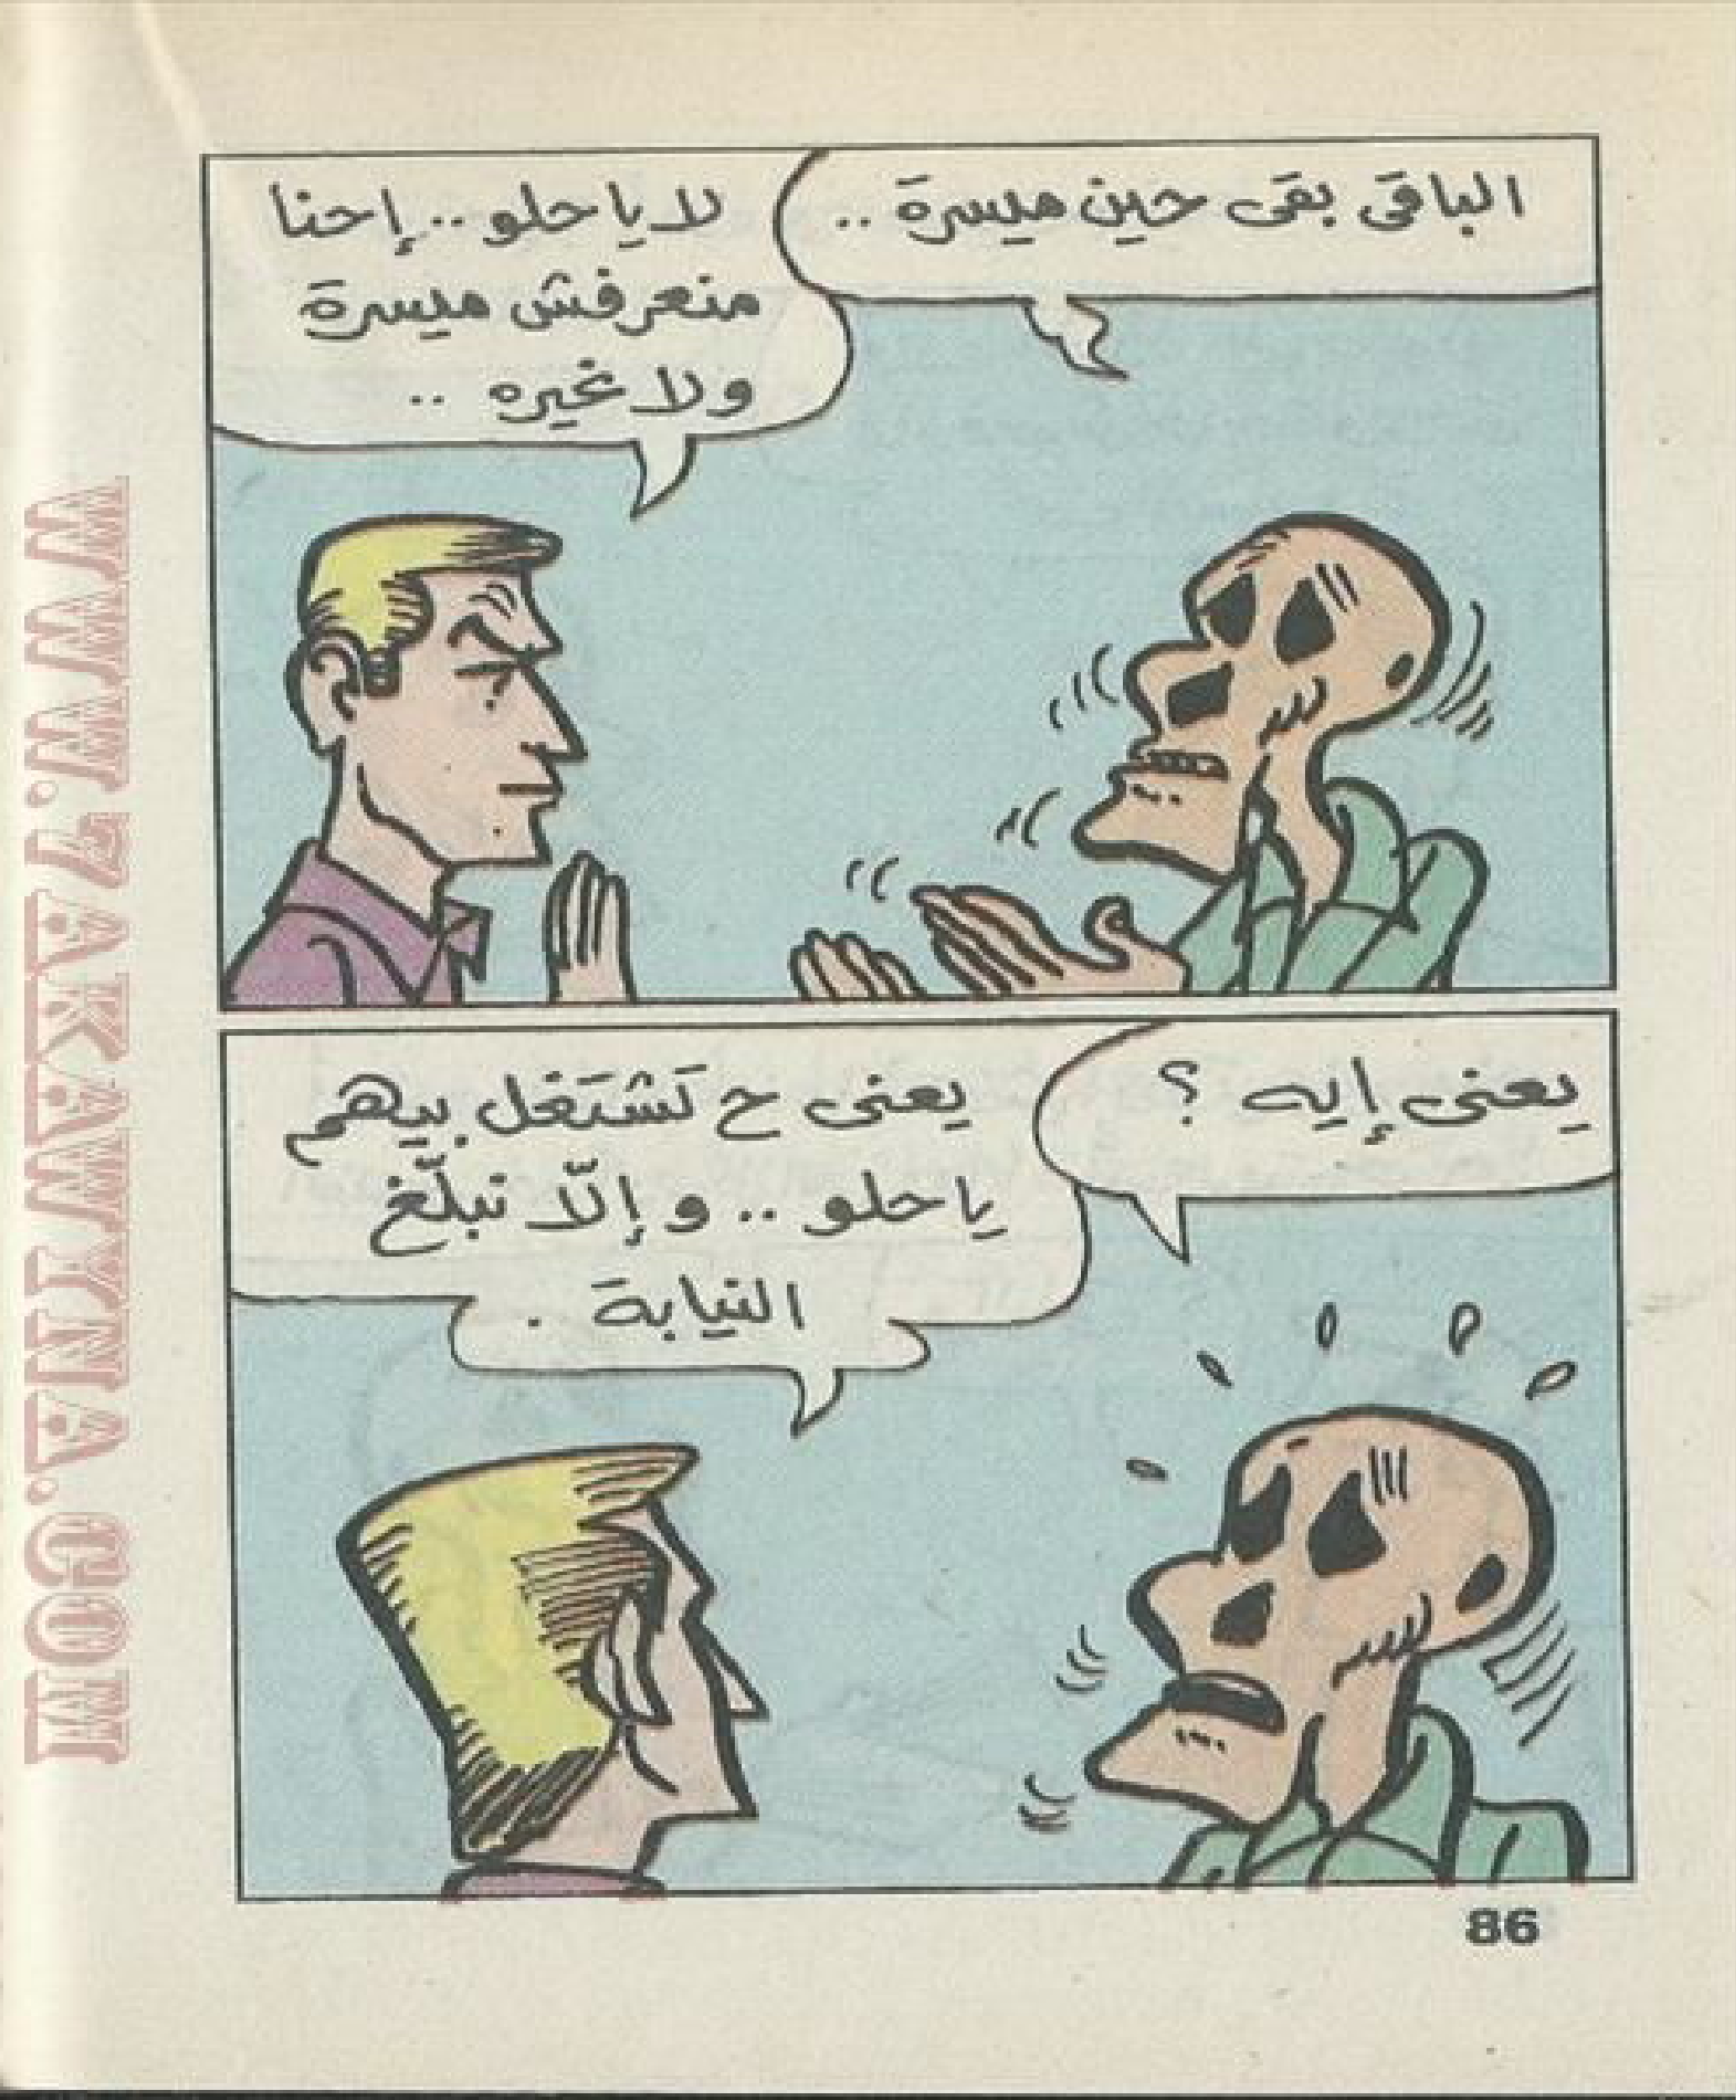 الباقى بقى حين ميسرة ..
لا يا حلو .. إحنا
منعرفش ميسرة
ولا غيره ..
يعنى إيه ؟
يعنى ح تَشتَغل بيهم
يا حلو .. و إلّا نبلّغ
النيابة .
86
WWW.7AKAWYNA.COM